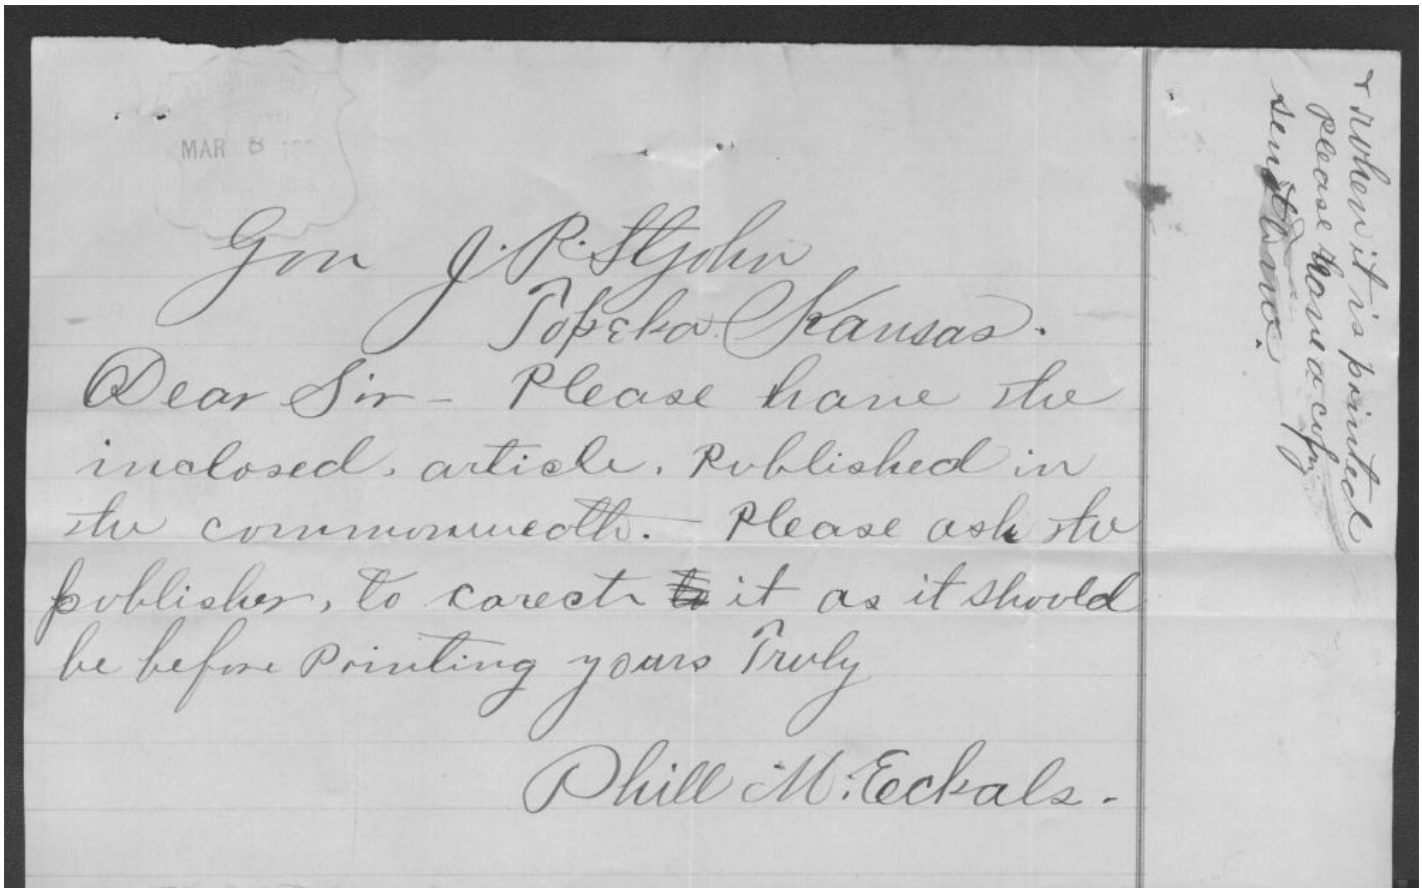 MAR 8
Gon J. P. St John
Topeka Kansas.
Dear Sir - Please have the
inclosed. article. Published in
the commonwealth. - Please ask the
publisher, to carect to it as it should
be before Printing yours Truly
Phill M. Eckals.
& when it is printed
please have a copy
sent to me.